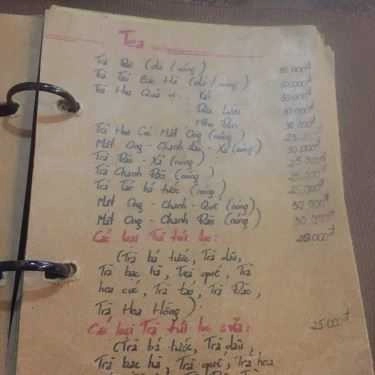 Tea
Trà Đào (đá / nóng) 30.000đ
Trà Táo Bạc Hà (đá / nóng) 30.000đ
Trà Hoa Quả + Xoài 30.000đ
Dưa Lưới 30.000đ
30.000đ
Trà Hoa Cúc Mật Ong (nóng) 25.000đ
Mật Ong - Chanh đào - Xả (nóng) 30.000đ
Trà Đào - Xả (nóng) 25.000đ
Trà Chanh Đào (nóng) 25.000đ
Trà Táo bá tước (nóng) 25.000đ
Mật Ong - Chanh - Quế (nóng) 30.000đ
Mật Ong - Chanh Đào (nóng) 30.000đ
Các loại Trà túi lọc: 20.000đ
(Trà bá tước, Trà dâu,
Trà bạc hà, Trà quế, Trà
hoa cúc, Trà táo, Trà Đào,
Trà Hoa Hồng)
Các loại Trà túi lọc sữa: 25.000đ
(Trà bá tước, Trà dâu,
Trà bạc hà, Trà quế, Trà hoa